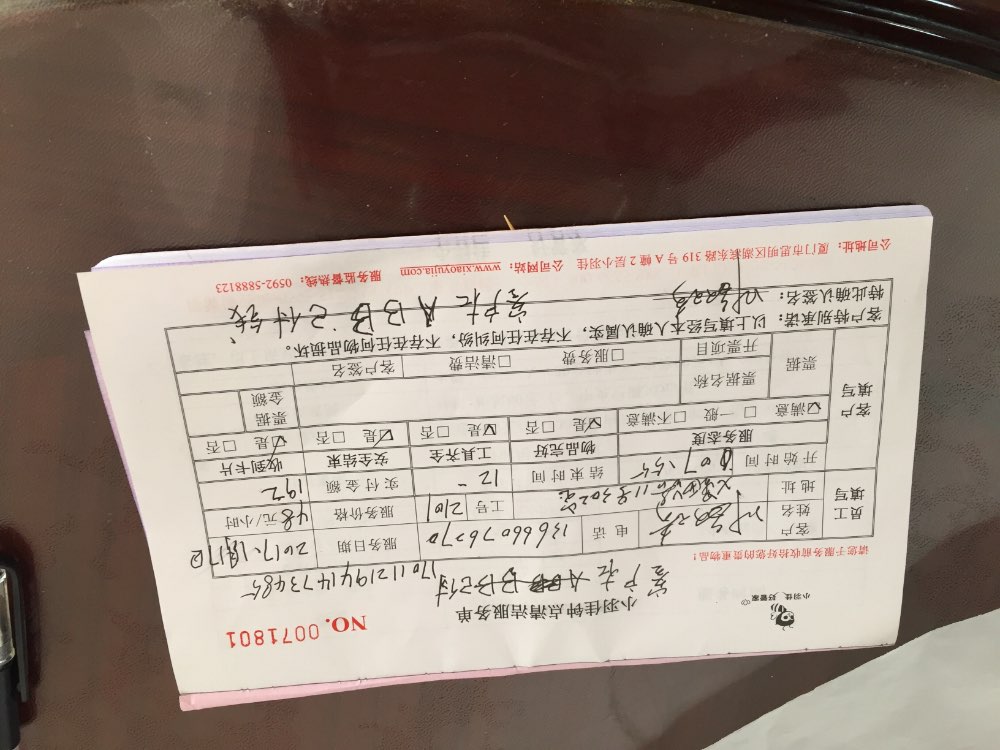 小羽佳 好管家
NO. 0071801
小羽佳钟点清洁服务单
客户在ABB已付 170112194147348
请您于服务前收拾好您的贵重物品!
员工填写 客户姓名 电话 13666076270 服务日期 2017、1月17日
地址 11号302室 工号 2101 服务价格 48元/小时
开始时间 结束时间 12 实付金额 192
客户填写 服务态度 物品完好 工具齐全 安全结束 收到卡片
☑满意 □一般 □不满意 ☑是 □否 ☑是 □否 ☑是 □否 ☑是 □否
票据 票据名称 票据金额
开票项目 □服务费 □清洁费 客户签名
客户特别承诺:以上填写经本人确认属实,不存在任何纠纷,不存在任何物品损坏。
特此确认签名: 客户在ABB已付钱
公司地址:厦门市思明区湖滨东路319号A幢2层小羽佳 公司网站:www.xiaoyujia.com 服务监督热线:0592-5888123